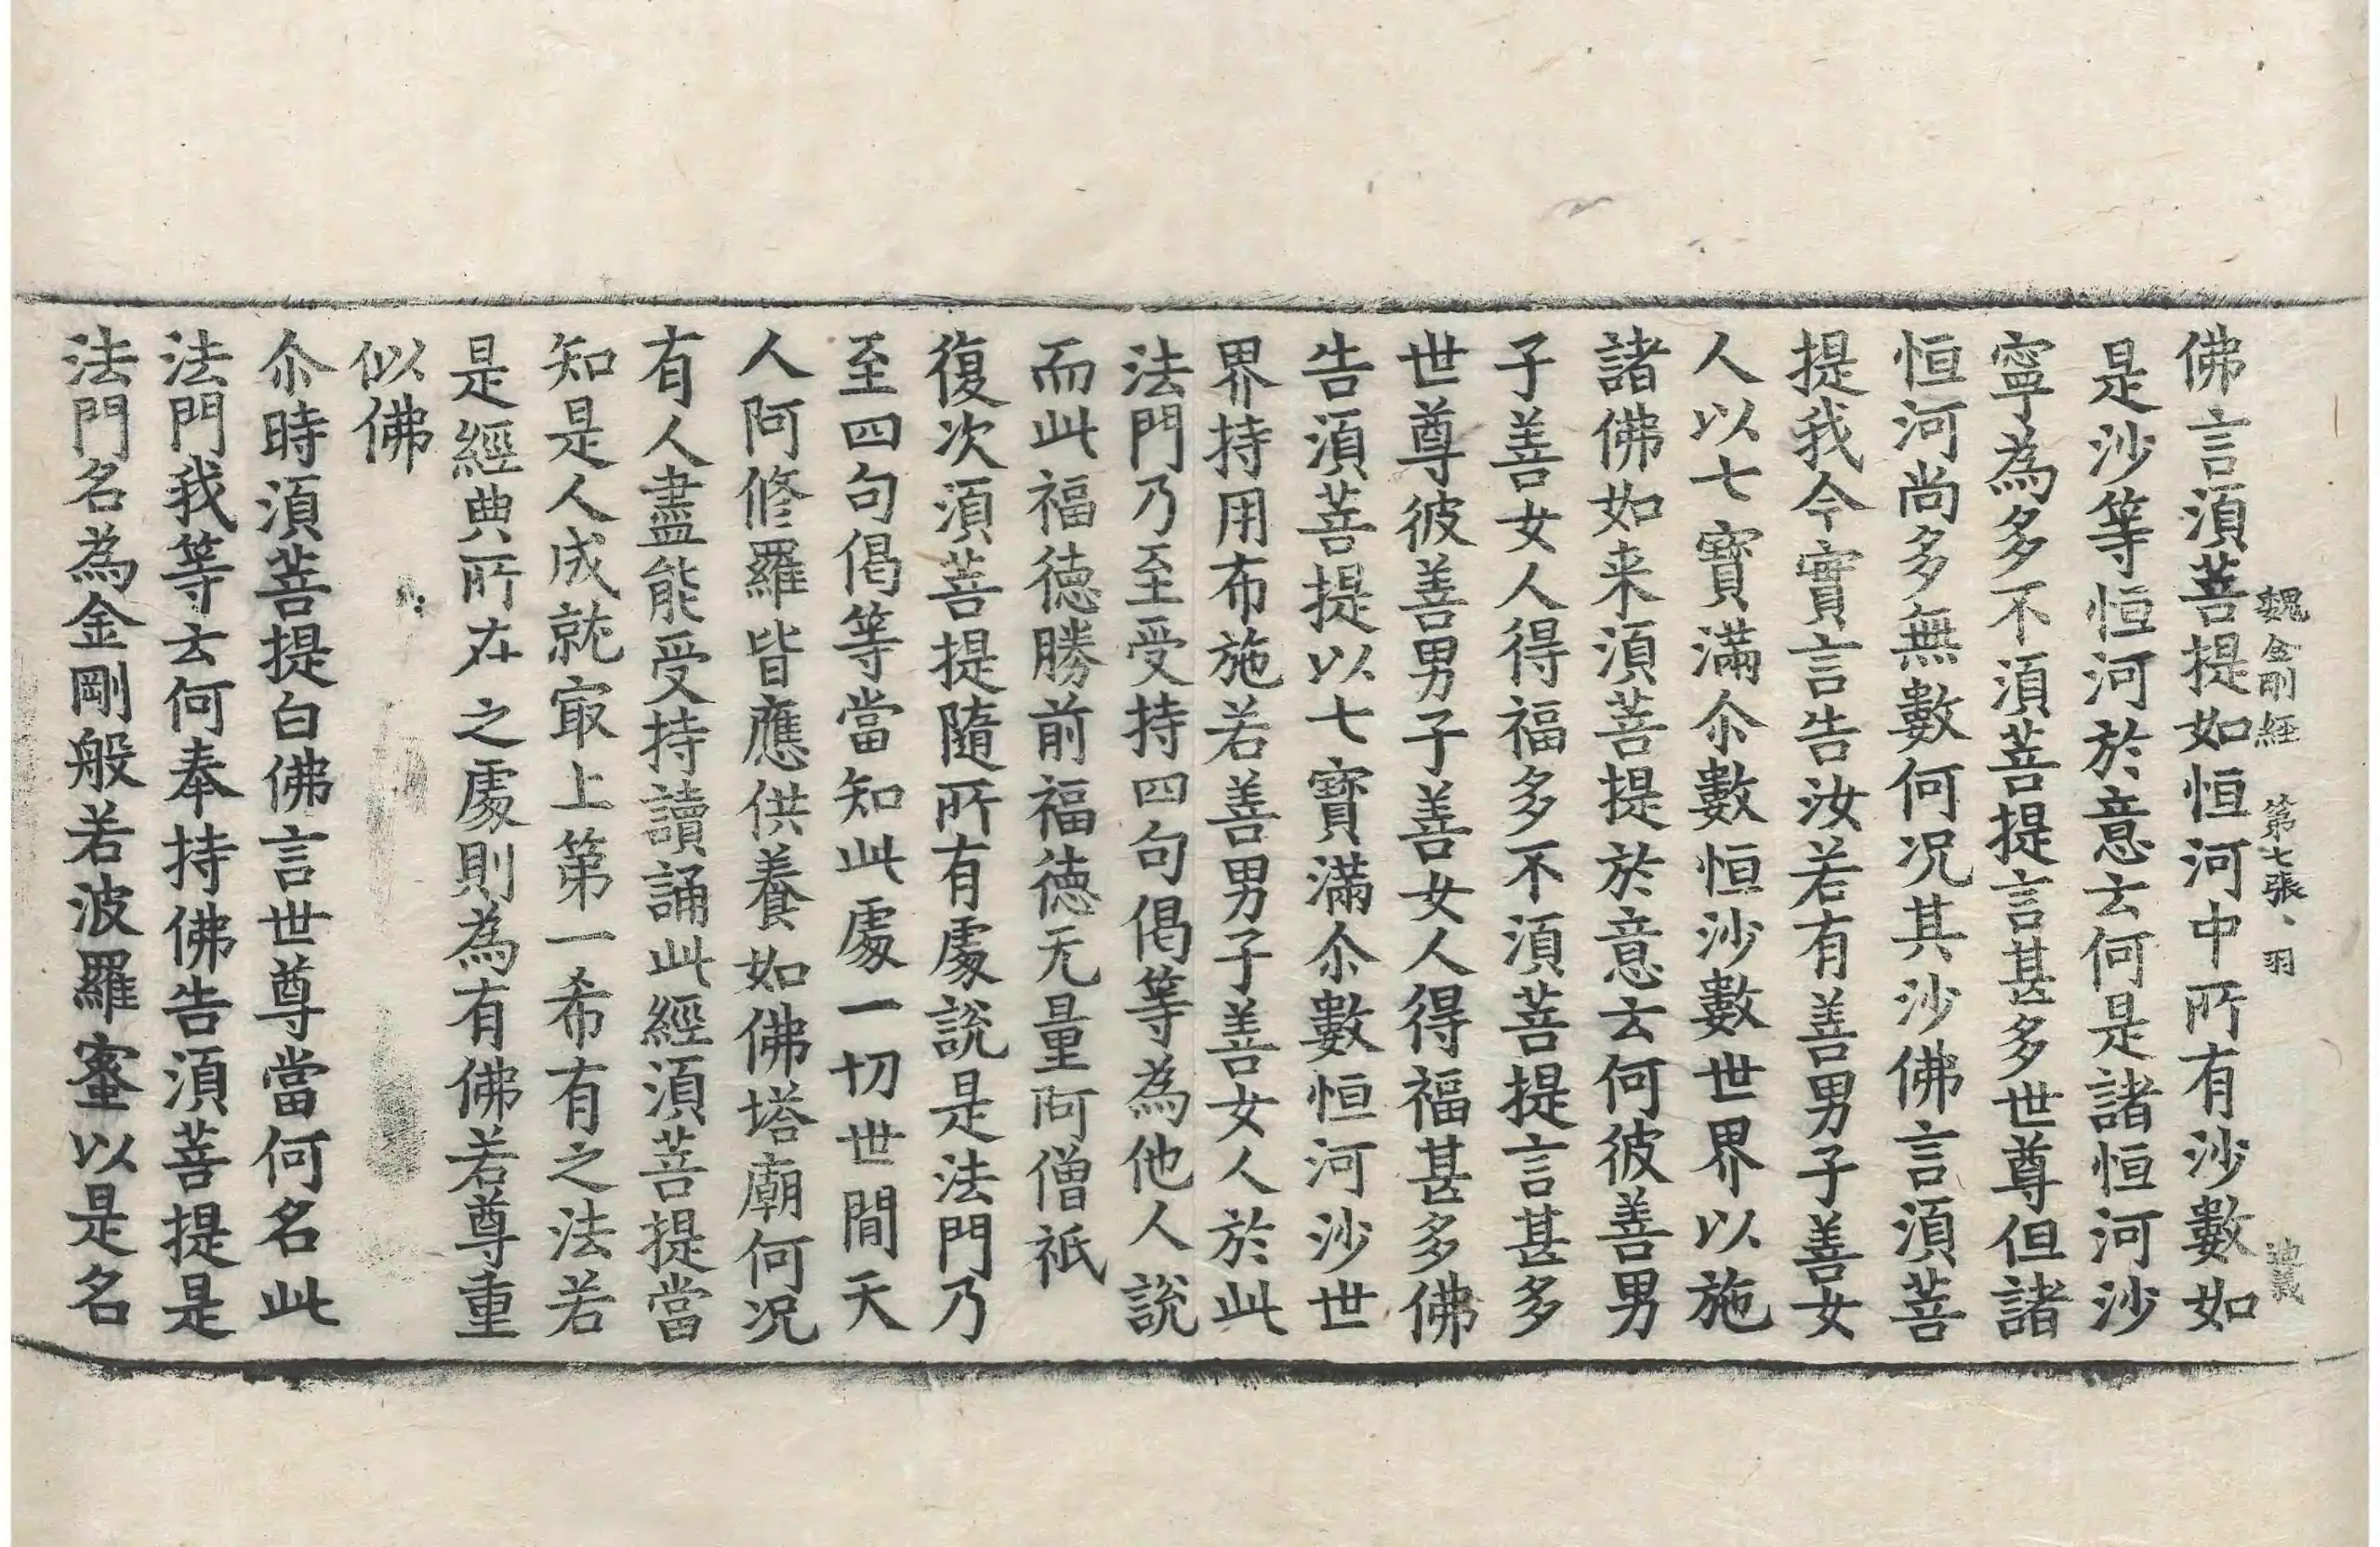 魏金剛経 第七張、羽
佛言湏菩提如恒河中所有沙數如
是沙等恒河於意云何是諸恒河沙
寧為多不湏菩提言甚多世尊但諸
恒河尚多無數何况其沙佛言湏菩
提我今實言告汝若有善男子善女
人以七寶滿尒數恒沙數世界以施
諸佛如来湏菩提於意云何彼善男
子善女人得福多不湏菩提言甚多
世尊彼善男子善女人得福甚多佛
告湏菩提以七寶滿尒數恒河沙世
界持用布施若善男子善女人於此
法門乃至受持四句偈等為他人說
而此福德勝前福德无量阿僧祇
復次湏菩提隨所有處說是法門乃
至四句偈等當知此處一切世間天
人阿修羅皆應供養如佛塔廟何况
有人盡能受持讀誦此經湏菩提當
知是人成就冣上第一希有之法若
是經典所在之處則為有佛若尊重
似佛
尒時湏菩提白佛言世尊當何名此
法門我等云何奉持佛告湏菩提是
法門名為金剛般若波羅蜜以是名